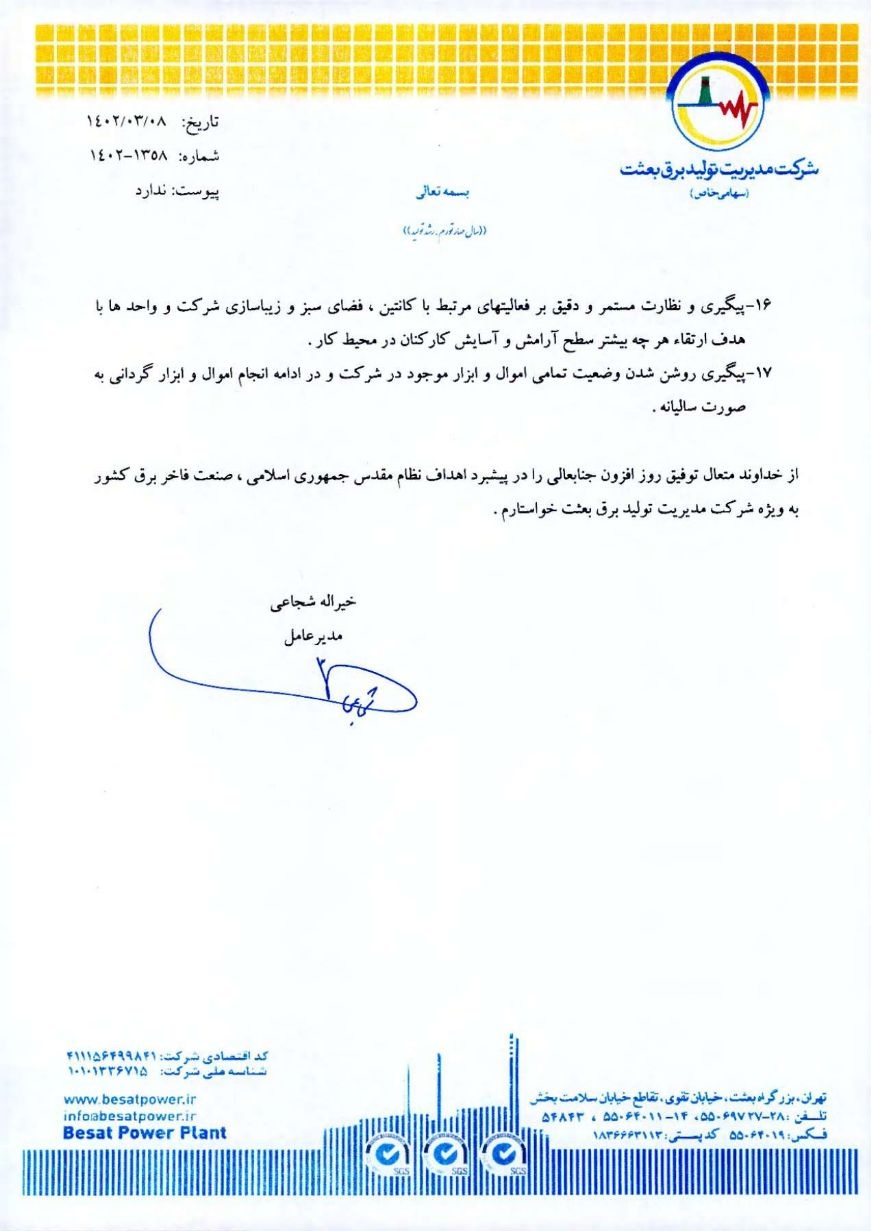 تاریخ: ۱۴۰۲/۰۳/۰۸
شماره: ۱۳۵۸-۱۴۰۲
پیوست: ندارد
شرکت مدیریت تولید برق بعثت
(سهامی خاص)
بسمه تعالی
((سال مهار تورم ، رشد تولید))
۱۶-پیگیری و نظارت مستمر و دقیق بر فعالیتهای مرتبط با کانتین ، فضای سبز و زیباسازی شرکت و واحد ها با
هدف ارتقاء هر چه بیشتر سطح آرامش و آسایش کارکنان در محیط کار .
۱۷-پیگیری روشن شدن وضعیت تمامی اموال و ابزار موجود در شرکت و در ادامه انجام اموال و ابزار گردانی به
صورت سالیانه .
از خداوند متعال توفیق روز افزون جنابعالی را در پیشبرد اهداف نظام مقدس جمهوری اسلامی ، صنعت فاخر برق کشور
به ویژه شرکت مدیریت تولید برق بعثت خواستارم .
خیراله شجاعی
مدیرعامل
تهران، بزرگراه بعثت، خیابان تقوی، تقاطع خیابان سلامت بخش
تلفن: ۲۸-۵۵۰۶۹۷۲۷، ۱۴-۵۵۰۶۴۰۱۱ ، ۵۴۸۴۳
فکس: ۵۵۰۶۴۰۱۹ کدپستی: ۱۸۳۶۶۶۳۱۱۳
کد اقتصادی شرکت: ۴۱۱۱۵۶۴۹۹۸۴۱
شناسه ملی شرکت: ۱۰۱۰۱۳۳۶۷۱۵
www.besatpower.ir
info@besatpower.ir
Besat Power Plant
SGS
SGS
SGS